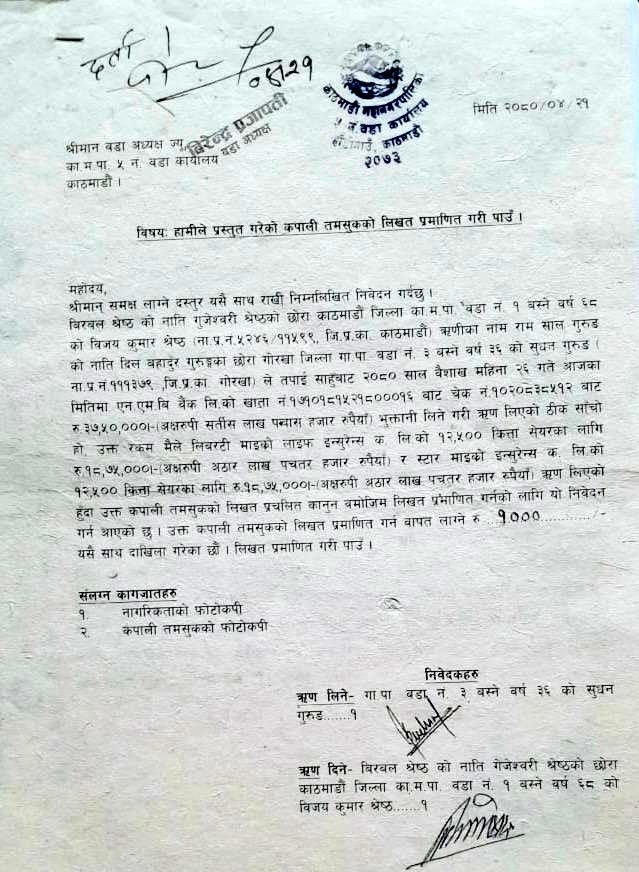 दर्ता
वीरेन्द्र प्रजापती
वडा अध्यक्ष
काठमाडौं महानगरपालिका
५ नं वडा कार्यालय
हाँडीगाउँ, काठमाडौं
२०७३
मिति २०८०/०४/२१
श्रीमान वडा अध्यक्ष ज्यू
का.म.पा. ५ न. वडा कार्यालय
काठमाडौं ।
विषय: हामीले प्रस्तुत गरेको कपाली तमसुकको लिखत प्रमाणित गरी पाउँ ।
महोदय,
श्रीमान् समक्ष लाग्ने दस्तुर यसै साथ राखी निम्नलिखित निवेदन गर्दछु ।
बिरबल श्रेष्ठ को नाति गुजेश्वरी श्रेष्ठको छोरा काठमाडौं जिल्ला का.म.पा. वडा नं. १ बस्ने वर्ष ६८
को विजय कुमार श्रेष्ठ (ना.प्र.नं.५२४६/११५९९, जि.प्र.का. काठमाडौं) ऋणीका नाम राम साल गुरुङ
को नाति दिल बहादुर गुरुङ्गका छोरा गोरखा जिल्ला गा.पा. वडा नं. ३ बस्ने वर्ष ३६ को सुधन गुरुङ (
ना.प्र.नं.१११३७९ ,जि.प्र.का. गोरखा) ले तपाई साहुबाट २०८० साल वैशाख महिना २६ गते आजका
मितिमा एन.एम.बि बैंक लि.को खाता नं.१७१०१८१५२१८०००१६ बाट चेक नं.१०२०८३८५१२ बाट
रु.३७५०,०००।-(अक्षरुपी सतीस लाख पचास हजार रुपैयाँ) भुक्तानी लिने गरी ऋण लिएको ठीक साँचो
हो, उक्त रकम मैले लिबरटी माइको लाइफ इन्सुरेन्स क. लि.को १२,५०० कित्ता सेयरका लागि
रु.१८,७५,०००।-(अक्षरुपी अठार लाख पचतर हजार रुपैयाँ) र स्टार माइको इन्सुरेन्स क. लि.को
१२,५०० कित्ता सेयरका लागि रु.१८,७५,०००।-(अक्षरुपी अठार लाख पचतर हजार रुपैयाँ) ऋण लिएको
हुँदा उक्त कपाली तमसुकको लिखत प्रचलित कानुन बमोजिम लिखत प्रमाणित गर्नको लागि यो निवेदन
गर्न आएको छ । उक्त कपाली तमसुकको लिखत प्रमाणित गर्न बापत लाग्ने रु ...१०००............/-
यसै साथ दाखिला गरेका छौं । लिखत प्रमाणित गरी पाउँ ।
संलग्न कागजातहरु
१. नागरिकताको फोटोकपी
२. कपाली तमसुकको फोटोकपी
निवेदकहरु
ऋण लिने- गा.पा. वडा नं. ३ बस्ने वर्ष ३६ को सुधन
गुरुङ.......१
ऋण दिने- बिरबल श्रेष्ठ को नाति गेजेश्वरी श्रेष्ठको छोरा
काठमाडौं जिल्ला का.म.पा. वडा नं. १ बस्ने वर्ष ६८ को
विजय कुमार श्रेष्ठ.......१